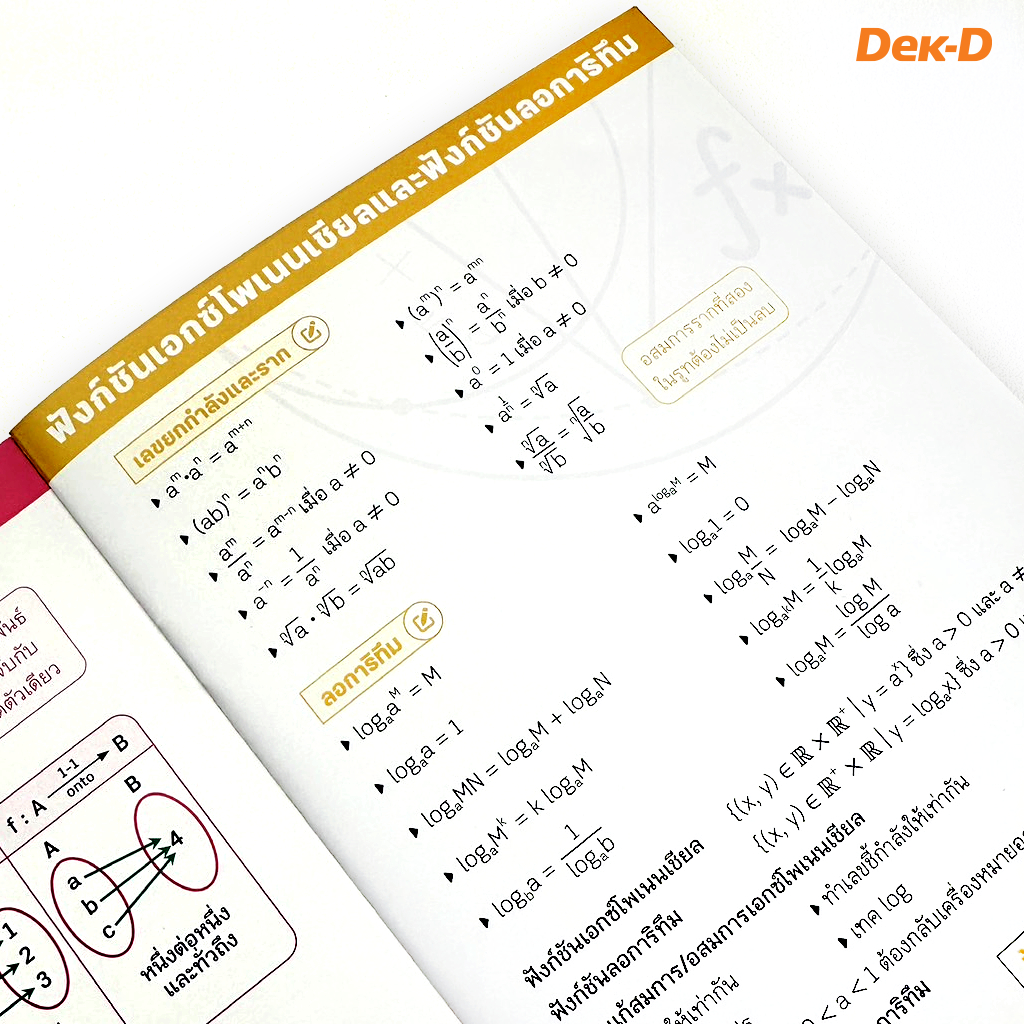 Dек-D
ฟังก์ชันเอกซ์โพเนนเชียลและฟังก์ชันลอการิทึม
เลขยกกำลังและราก
aᵐ•aⁿ = aᵐ⁺ⁿ
(ab)ⁿ = aⁿbⁿ
aᵐ/aⁿ = aᵐ⁻ⁿ เมื่อ a ≠ 0
a⁻ⁿ = 1/aⁿ เมื่อ a ≠ 0
ⁿ√a • ⁿ√b = ⁿ√ab
(aᵐ)ⁿ = aᵐⁿ
(a/b)ⁿ = aⁿ/bⁿ เมื่อ b ≠ 0
a⁰ = 1 เมื่อ a ≠ 0
a^(1/n) = ⁿ√a
ⁿ√a/ⁿ√b = ⁿ√(a/b)
อสมการรากที่สอง
ในรูทต้องไม่เป็นลบ
fx
ลอการิทึม
logₐaᴹ = M
logₐa = 1
logₐMN = logₐM + logₐN
logₐMᵏ = k logₐM
log_b a = 1/logₐb
a^(logₐM) = M
logₐ1 = 0
logₐ M/N = logₐM − logₐN
log_(aᵏ) M = 1/k logₐM
logₐM = log M/log a
ฟังก์ชันเอกซ์โพเนนเชียล
{(x, y) ∈ ℝ × ℝ⁺ | y = aˣ} ซึ่ง a > 0 และ a ≠
ฟังก์ชันลอการิทึม
{(x, y) ∈ ℝ⁺ × ℝ | y = logₐx} ซึ่ง a > 0
แก้สมการ/อสมการเอกซ์โพเนนเชียล
ทำเลขชี้กำลังให้เท่ากัน
ให้เท่ากัน
เทค log
< a < 1 ต้องกลับเครื่องหมายอ
การิทึม
พันธ์
จับกับ
ตัวเดียว
f : A 1-1 onto B
A B
a
b
c
4
1
2
3
หนึ่งต่อหนึ่ง
และทั่วถึง